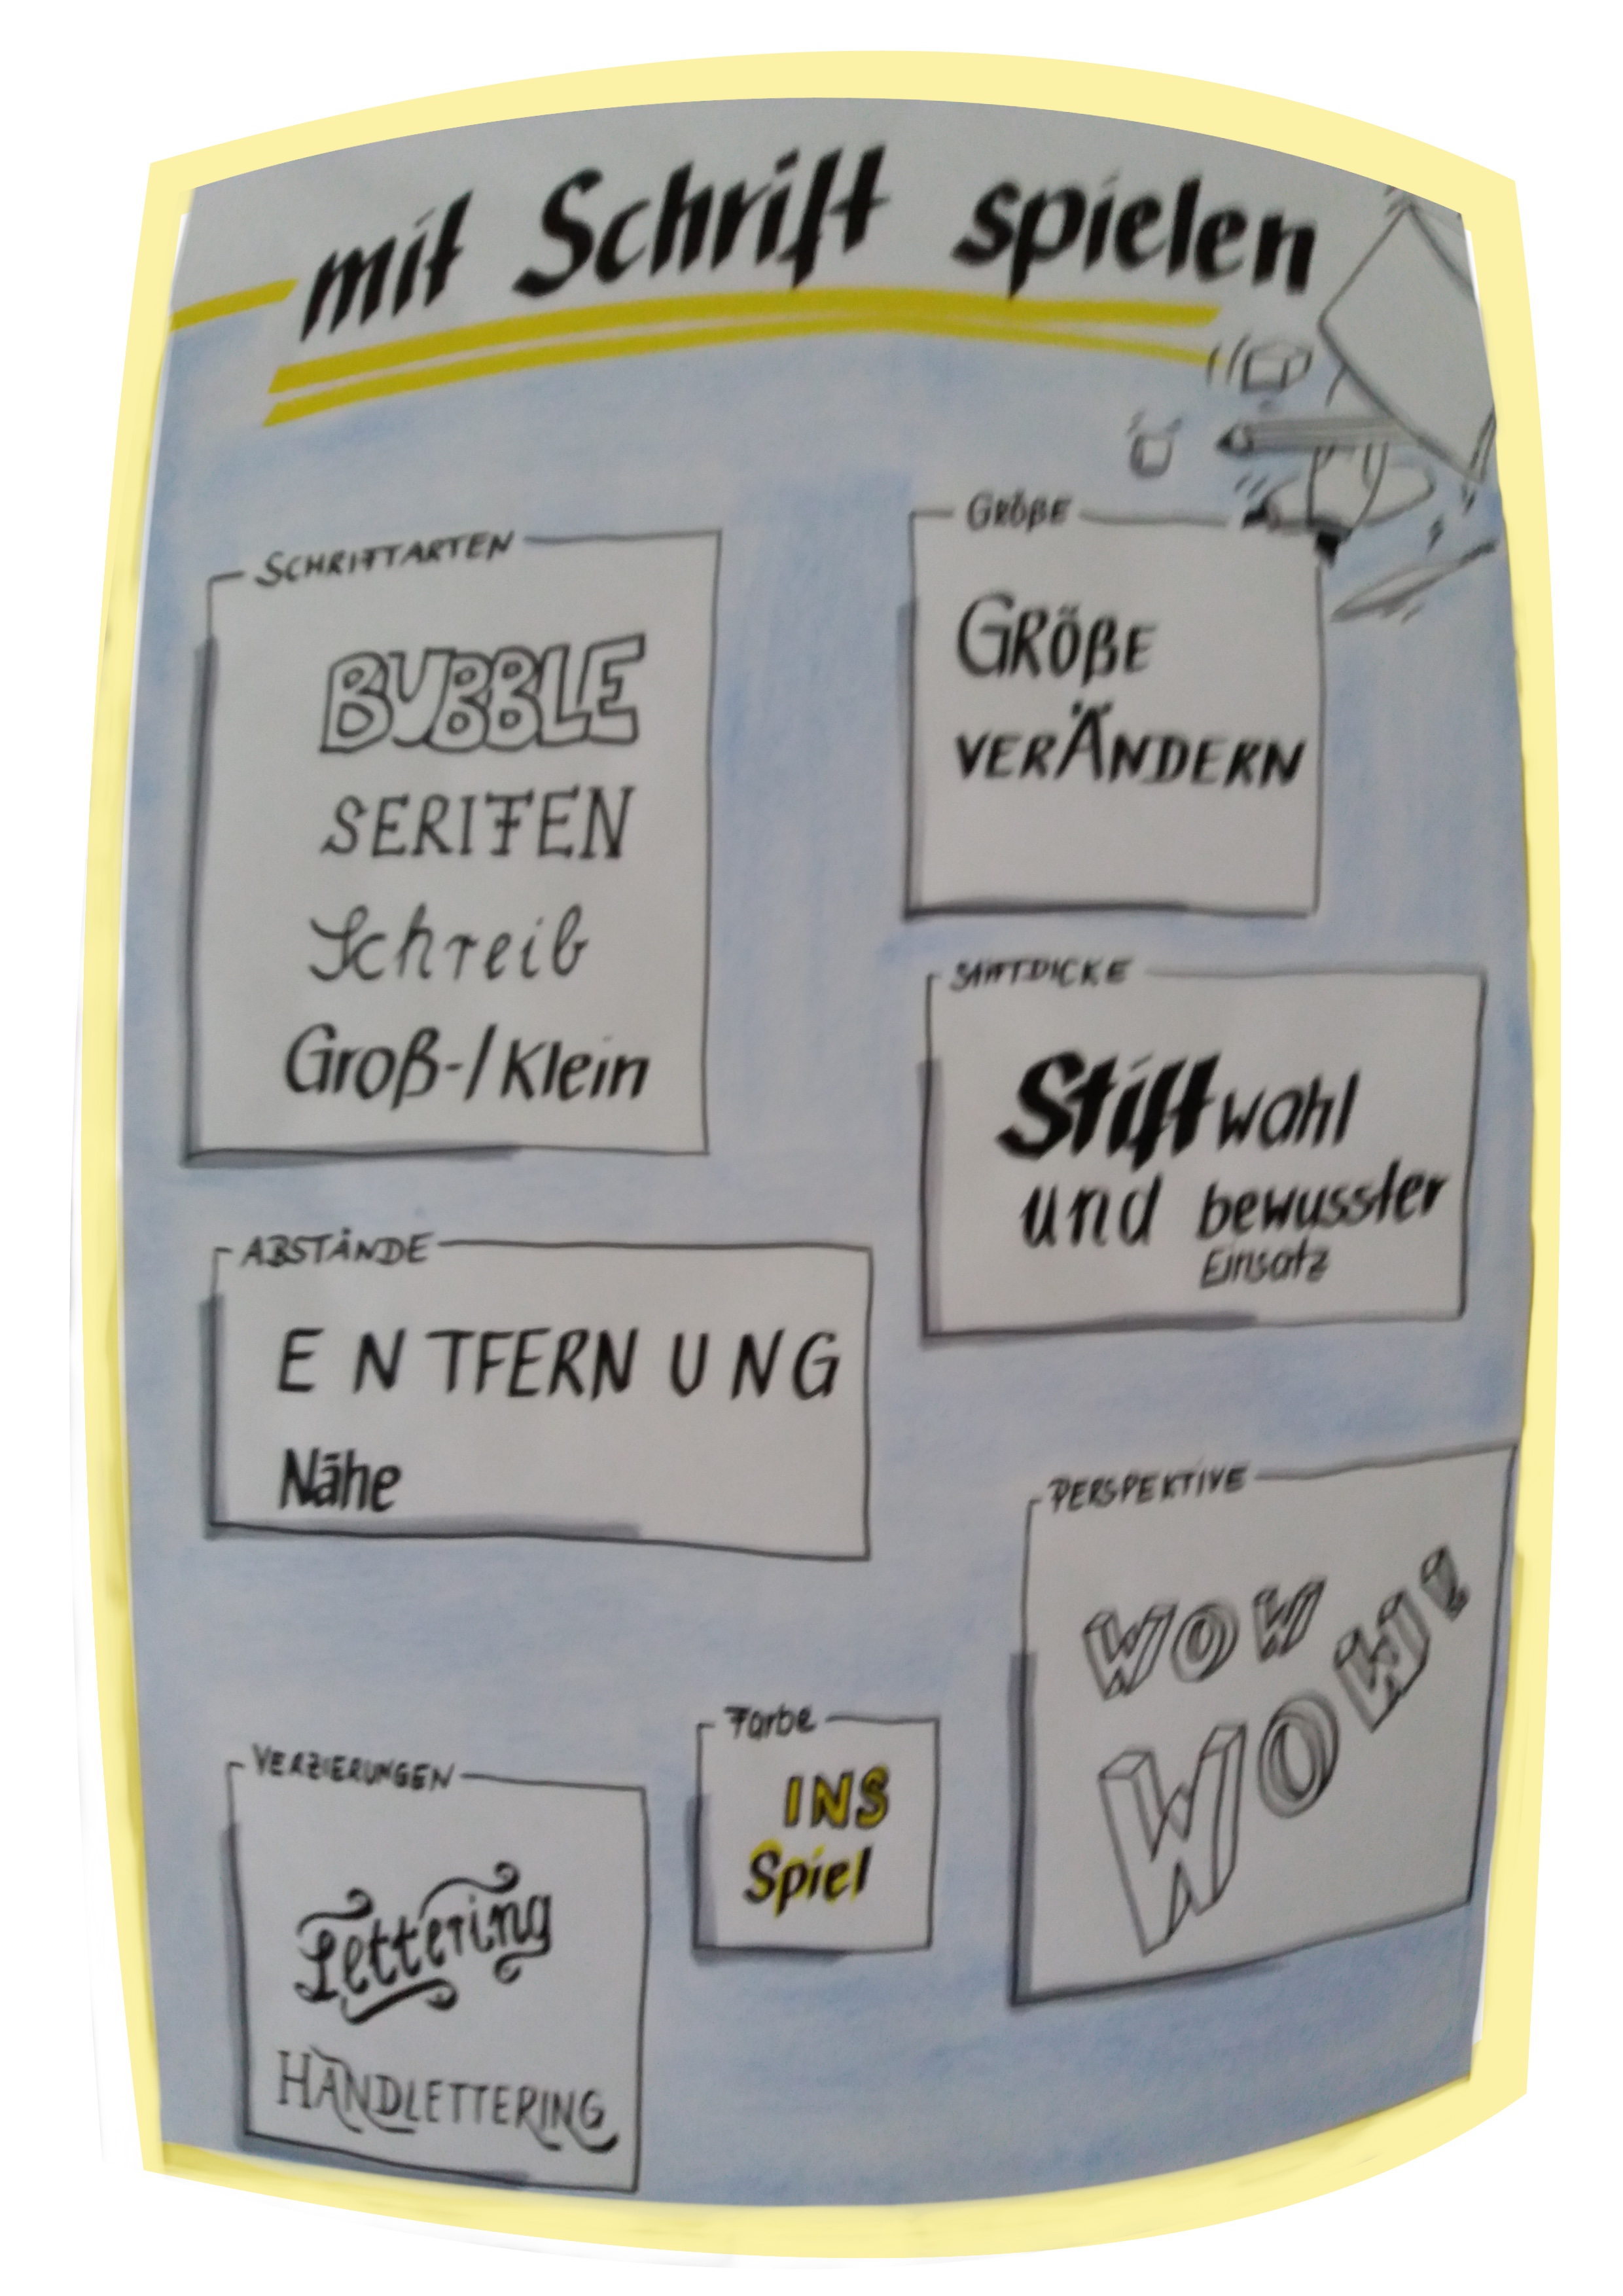 mit Schrift spielen
SCHRIFTARTEN
BUBBLE
SERIFEN
Schreib
Groß-/Klein
GRÖßE
GRÖßE
VERÄNDERN
STIFTDICKE
Stiftwahl
und bewusster
Einsatz
ABSTÄNDE
E N TFERN U NG
Nähe
PERSPEKTIVE
WOW
WOW!
Farbe
INS
Spiel
VERZIERUNGEN
Lettering
HANDLETTERING